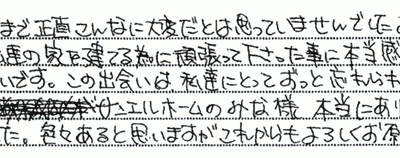 まで正直こんなに大変だとは思っていませんでした
達の家を建てる為に頑張って下さった事に本当感
いです。この出会いは、私達にとってずっと忘れいも
サンエルホームのみな様 本当にあり
た。色々あると思いますがこれからもよろしくお願